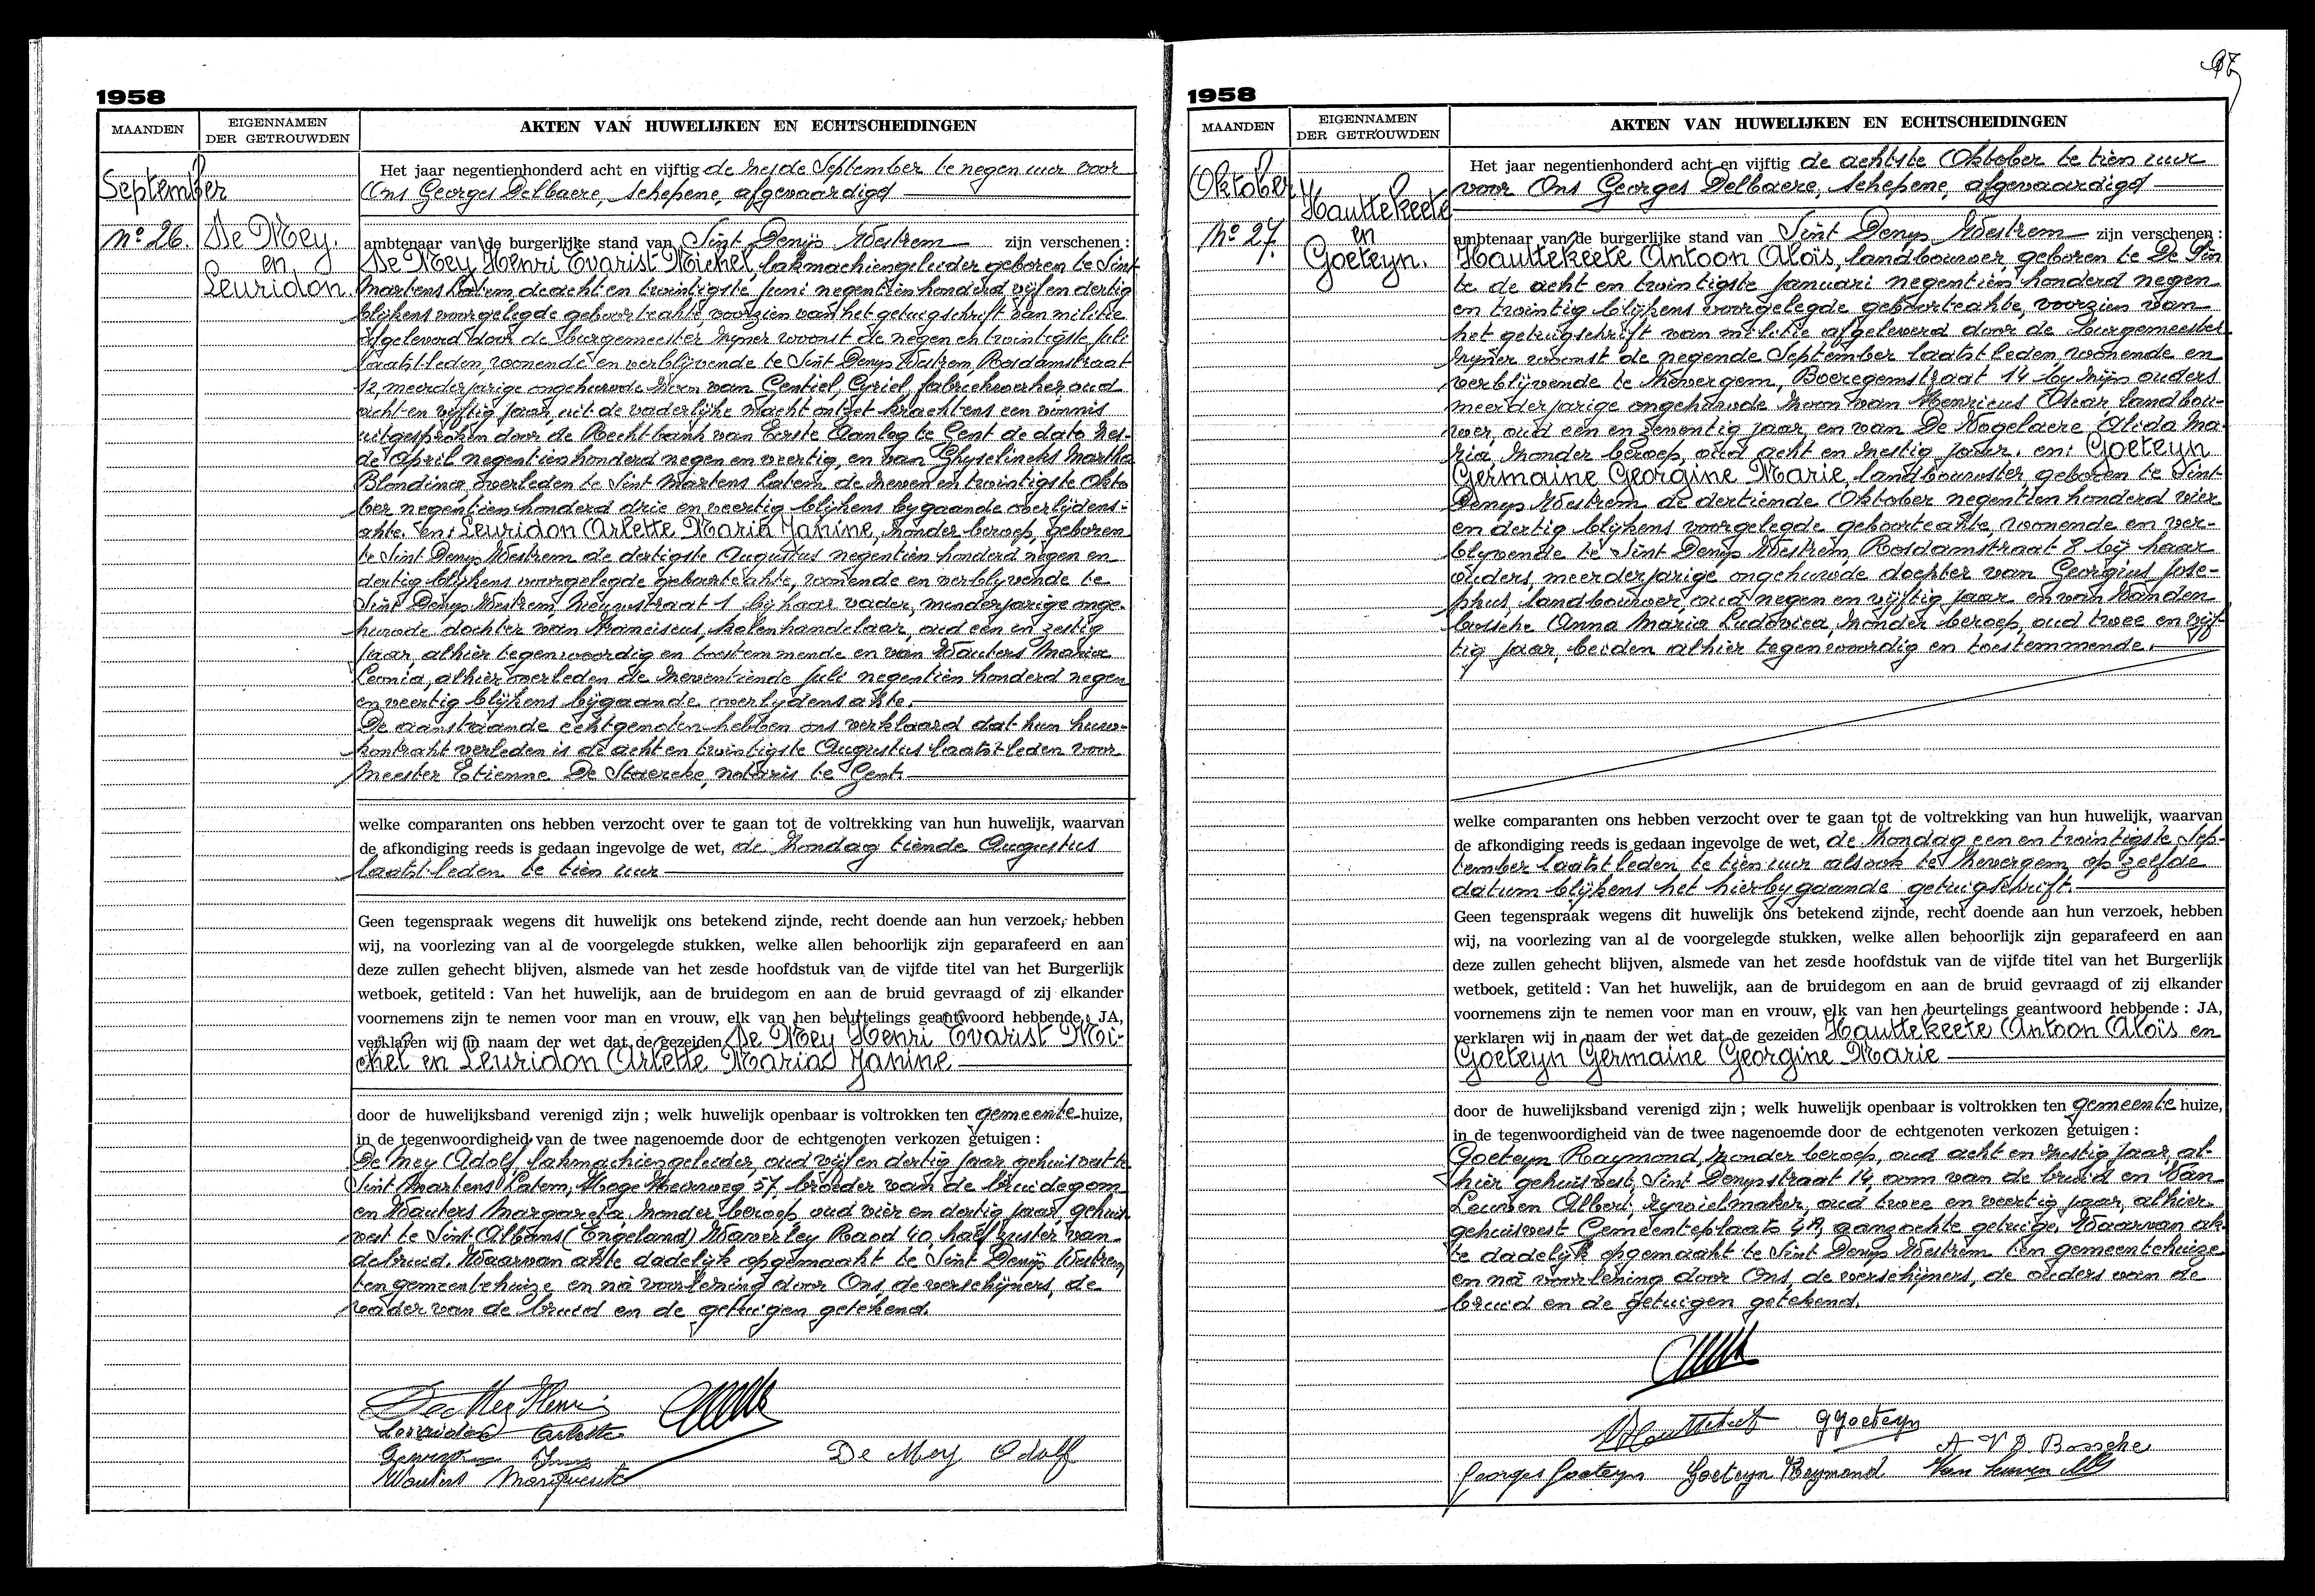 1958
MAANDEN
EIGENNAMEN
DER GETROUWDEN
AKTEN VAN HUWELIJKEN EN ECHTSCHEIDINGEN
September
No 26.
De Mey.
en
Leuridon.
Het jaar negentienhonderd acht en vijftig de zesde September te negen uur voor
Ons Georges Delbaere, schepene, afgevaardigd
ambtenaar van de burgerlijke stand van Sint Denijs Westrem zijn verschenen :
De Mey Henri Evarist Michel, lakmachiengeleider geboren te Sint
Martens Latem de acht en twintigste juni negentien honderd vijf en dertig
blijkens voorgelegde geboorteakte, voorzien van het getuigschrift van militie
afgeleverd door de burgemeester zijner woonst de negen en twintigste juli
laatstleden, wonende en verblijvende te Sint Denys Westrem, Rosdamstraat
12, meerderjarige ongehuwde zoon van Gentiel, Cyriel, fabriekwerker oud
acht en vijftig jaar, uit de vaderlijke macht ontzet krachtens een vonnis
uitgesproken door de Rechtbank van Eerste Aanleg te Gent de dato zes-
de April negentien honderd negen en veertig, en van Ghyselincks Martha
Blondina, overleden te Sint Martens Latem de zeven en twintigste Okto
ber negentien honderd drie en veertig blijkens bygaande overlijdens-
akte. en: Leuridon Arlette Maria Janine, zonder beroep, geboren
te Sint Denys Westrem de dertigste Augustus negentien honderd negen en
dertig blijkens voorgelegde geboorteakte, wonende en verblyvende te
Sint Denys Westrem, Nieuwstraat 1 bij haar vader, minderjarige onge-
huwde dochter van Franciscus, kolenhandelaar, oud een en zestig
jaar, alhier tegenwoordig en toestemmende en van Wauters Maria
Leonia, alhier overleden de zeventiende juli negentien honderd negen
en veertig blijkens bijgaande overlydensakte.
De aanstaande echtgenoten hebben ons verklaard dat hun huw-
kontrakt verleden is de acht en twintigste Augustus laatstleden voor
Meester Etienne De Staercke, notaris te Gent.
welke comparanten ons hebben verzocht over te gaan tot de voltrekking van hun huwelijk, waarvan
de afkondiging reeds is gedaan ingevolge de wet, de Zondag tiende Augustus
laatstleden te tien uur
Geen tegenspraak wegens dit huwelijk ons betekend zijnde, recht doende aan hun verzoek, hebben
wij, na voorlezing van al de voorgelegde stukken, welke allen behoorlijk zijn geparafeerd en aan
deze zullen gehecht blijven, alsmede van het zesde hoofdstuk van de vijfde titel van het Burgerlijk
wetboek, getiteld : Van het huwelijk, aan de bruidegom en aan de bruid gevraagd of zij elkander
voornemens zijn te nemen voor man en vrouw, elk van hen beurtelings geantwoord hebbende : JA,
verklaren wij in naam der wet dat de gezeiden De Mey Henri Evarist Mi-
chel en Leuridon Arlette Maria Janine
door de huwelijksband verenigd zijn ; welk huwelijk openbaar is voltrokken ten gemeente huize,
in de tegenwoordigheid van de twee nagenoemde door de echtgenoten verkozen getuigen :
De Mey Adolf, lakmachiengeleider, oud vijf en dertig jaar gehuisvest te
Sint Martens Latem, Hoge Heirweg 57, broeder van de bruidegom
en Wauters Margareta zonder beroep, oud vier en dertig jaar, gehuis
vest te Sint Albans (Engeland) Waverley Raod 40, halfzuster van
de bruid. Waarvan akte dadelijk opgemaakt te Sint Denijs Westrem
ten gemeentehuize en na voorlezing door Ons, de verschijners, de
vader van de bruid en de getuigen getekend.
De Mey Henri
Leuridon Arlette
Wauters Marguerite
De Mey Adolf
1958
MAANDEN
EIGENNAMEN
DER GETROUWDEN
AKTEN VAN HUWELIJKEN EN ECHTSCHEIDINGEN
Oktober
No 27.
Hauttekeete
en
Goeteyn.
Het jaar negentienhonderd acht en vijftig de achtste Oktober te tien uur
voor Ons Georges Delbaere, schepene, afgevaardigd
ambtenaar van de burgerlijke stand van Sint Denys Westrem zijn verschenen :
Hauttekeete Antoon Aloïs, landbouwer, geboren te De Pin
te de acht en twintigste Januari negentien honderd negen
en twintig blijkens voorgelegde geboorteakte, voorzien van
het getuigschrift van militie afgeleverd door de burgemeester
zijner woonst de negende September laatstleden, wonende en
verblijvende te Zevergem, Boeregemstraat 14 by zijn ouders
meerderjarige ongehuwde zoon van Henricus Oscar, landbou-
wer, oud een en zeventig jaar, en van De Vogelaere Alida Ma-
ria, zonder beroep, oud acht en zestig jaar. en: Goeteyn
Germaine Georgine Marie, landbouwster, geboren te Sint-
Denys Westrem, de dertiende Oktober negentien honderd vier
en dertig blijkens voorgelegde geboorteakte, wonende en ver-
blyvende te Sint Denys Westrem, Rosdamstraat 8 bij haar
ouders, meerderjarige ongehuwde dochter van Georgius Jose-
phus, landbouwer, oud negen en vijftig jaar en van Vanden
bossche Anna Maria Ludovica, zonder beroep, oud twee en vijf-
tig jaar, beiden alhier tegenwoordig en toestemmende.
welke comparanten ons hebben verzocht over te gaan tot de voltrekking van hun huwelijk, waarvan
de afkondiging reeds is gedaan ingevolge de wet, de Zondag een en twintigste Sep-
tember laatstleden te tien uur alsook te Zevergem op zelfde
datum blijkens het hierbygaande getuigschrift.
Geen tegenspraak wegens dit huwelijk ons betekend zijnde, recht doende aan hun verzoek, hebben
wij, na voorlezing van al de voorgelegde stukken, welke allen behoorlijk zijn geparafeerd en aan
deze zullen gehecht blijven, alsmede van het zesde hoofdstuk van de vijfde titel van het Burgerlijk
wetboek, getiteld : Van het huwelijk, aan de bruidegom en aan de bruid gevraagd of zij elkander
voornemens zijn te nemen voor man en vrouw, elk van hen beurtelings geantwoord hebbende : JA,
verklaren wij in naam der wet dat de gezeiden Hauttekeete Antoon Aloïs en
Goeteyn Germaine Georgine Marie
door de huwelijksband verenigd zijn ; welk huwelijk openbaar is voltrokken ten gemeente huize,
in de tegenwoordigheid van de twee nagenoemde door de echtgenoten verkozen getuigen :
Goeteyn Raymond, zonder beroep, oud acht en zestig jaar, al-
hier gehuisvest, Sint Denysstraat 14, oom van de bruid en Van
Leuven Albert, rywielmaker, oud twee en veertig jaar, alhier
gehuisvest Gemeenteplaats 48, aangezochte getuige. Waarvan ak-
te dadelijk opgemaakt te Sint Denys Westrem ten gemeentehuize
en na voorlezing door Ons, de verschijners, de ouders van de
bruid en de getuigen getekend.
GGoeteyn
A V D Bossche
Georges Goeteyn Goeteyn Reymond Van Leuven Alb